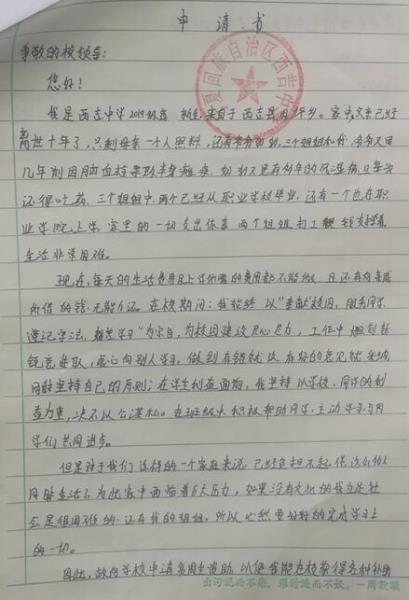 申请书
夏回族自治区西吉中
尊敬的校领导:
您好!
我是西吉中学2019级 来自于西吉县 乡。家 父亲已经
离世十年了,只剩母亲一个人照料,还有 奶奶,三个姐姐和我,爷爷又因
几年前因脑血栓 导致半身瘫痪, 奶奶又患有多年的风湿病,且每天
还得吃药,三个姐姐中两个已经从职业学校毕业,还有一个也在职
业学院上学,家里的一切支出依靠两个姐姐打工 支撑着,
生活非常困难。
现在,每天的生活费用及上学所需的费用都不能 ,且还有
所借的钱,无能力还。在校期间:我始终以“奉献校园,服务同学,
遵记学法, 学习”为宗旨,为校园建设尽心尽力,工作中做到
锐意进取,虚心向别人学习,做到有错就改,有好的意见就采纳,
同时坚持自己的原则;在学生利益面前,我坚持以学校、同学的利
益为重,决不以公谋私。在班级中,积极帮助同学,主动学习与同
学们共同进步。
但是对于我们这样的一个家庭来说,已经负担不起
生活 为此家中面临着巨大压力,如果没有文化的我立足社
会是很困难的,还有我的姐姐,所以 要好好的完成学业
的一切。
因此,故向学校申请 援助,以便我能在校获得各种补助
出污泥而不染,濯清涟而不妖。—周敦颐